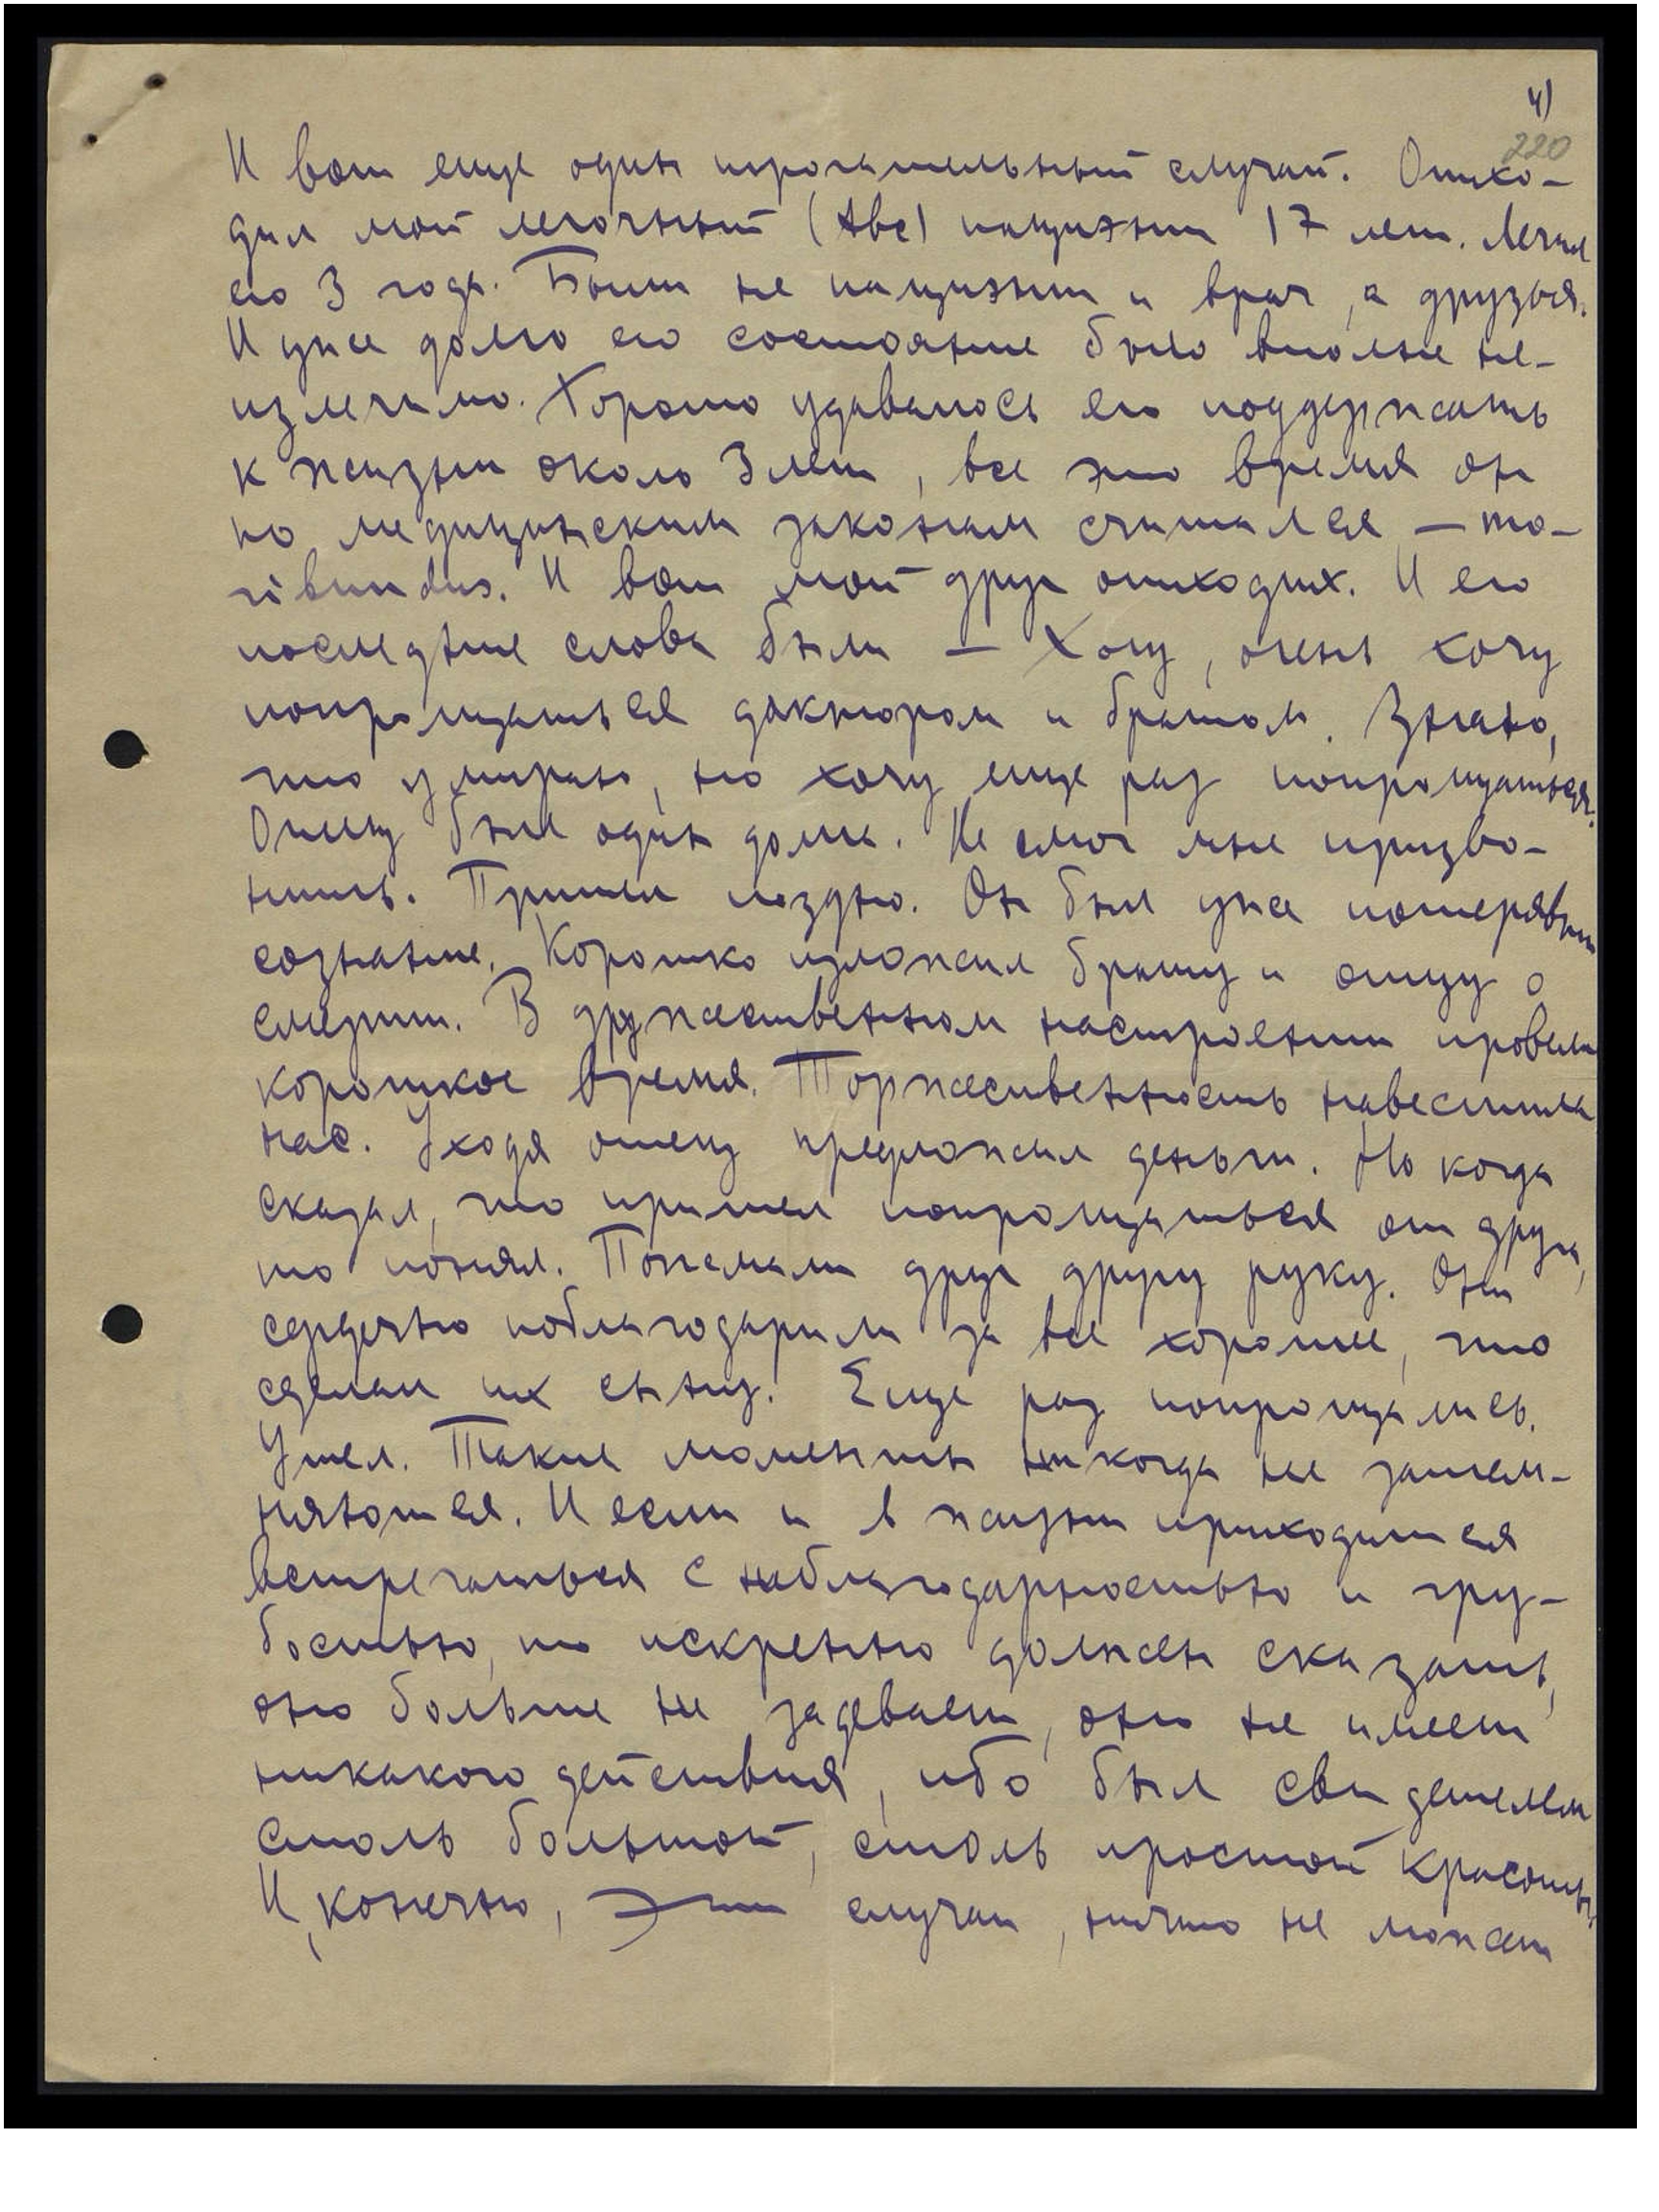 4)
220
И вот еще один трогательный случай. Отхо-
дил мой легочный (tbc) пациэнт 17 лет. Лечил
его 3 года. Были не пациэнт и врач, а друзья.
И уже долго его состояние было вполне не-
излечимо. Хорошо удавалось его поддержать
к жизни около 3 лет, все это время он
по медицинским законам считался – mo-
ribundus. И вот мой друг отходих. И его
последние слова были – Хочу, очень хочу
попрощаться доктором и братом. Знаю,
что умираю, но хочу еще раз попрощаться.
Отец был один дома. Не смог мне призво-
нить. Пришел поздно. Он был уже потерявши
сознание. Коротко изложил брату и отцу о
смерти. В дружественном настроении провели
короткое время. Торжественность навестила
нас. Уходя отец предложил деньги. Но когда
сказал, что пришел попрощаться от друга,
то понял. Пожимали друг другу руку. Они
сердечно поблагодарили за все хорошее, что
сделал их сыну. Еще раз попрощались.
Ушел. Такие моменты никогда не затем-
няются. И если и в жизни приходится
встречаться с неблагодарностью и гру-
бостью, то искренно должен сказать,
оно больше не задевает, оно не имеет
никакого действия, ибо был свидетелем
столь большой, столь простой красоты.
И, конечно, эти случаи, ничто не может